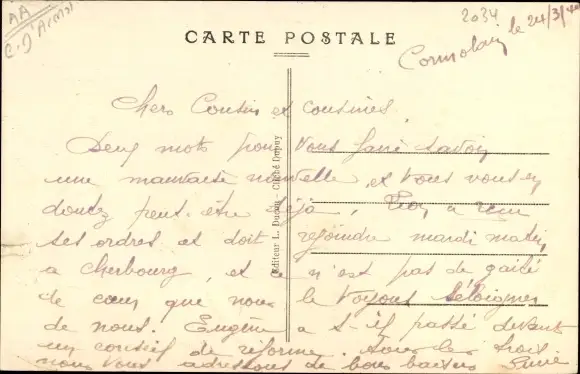 AA
C. D'Armor
2034
CARTE POSTALE
Cormolain le 24/3/40
Chers Cousin et cousines,
Deux mots pour vous faire savoir
une mauvaise nouvelle et vous vous en
doutez peut-être déjà, Léon a reçu
ses ordres et doit rejoindre mardi matin
a Cherbourg, et ce n'est pas de gaité
de cœur que nous le voyons s'éloigner
de nous. Eugène a-t-il passé devant
un conseil de réforme. Tous les trois
nous vous adressons de bons baisers
Editeur L. Dudon - Cliché Dupuy